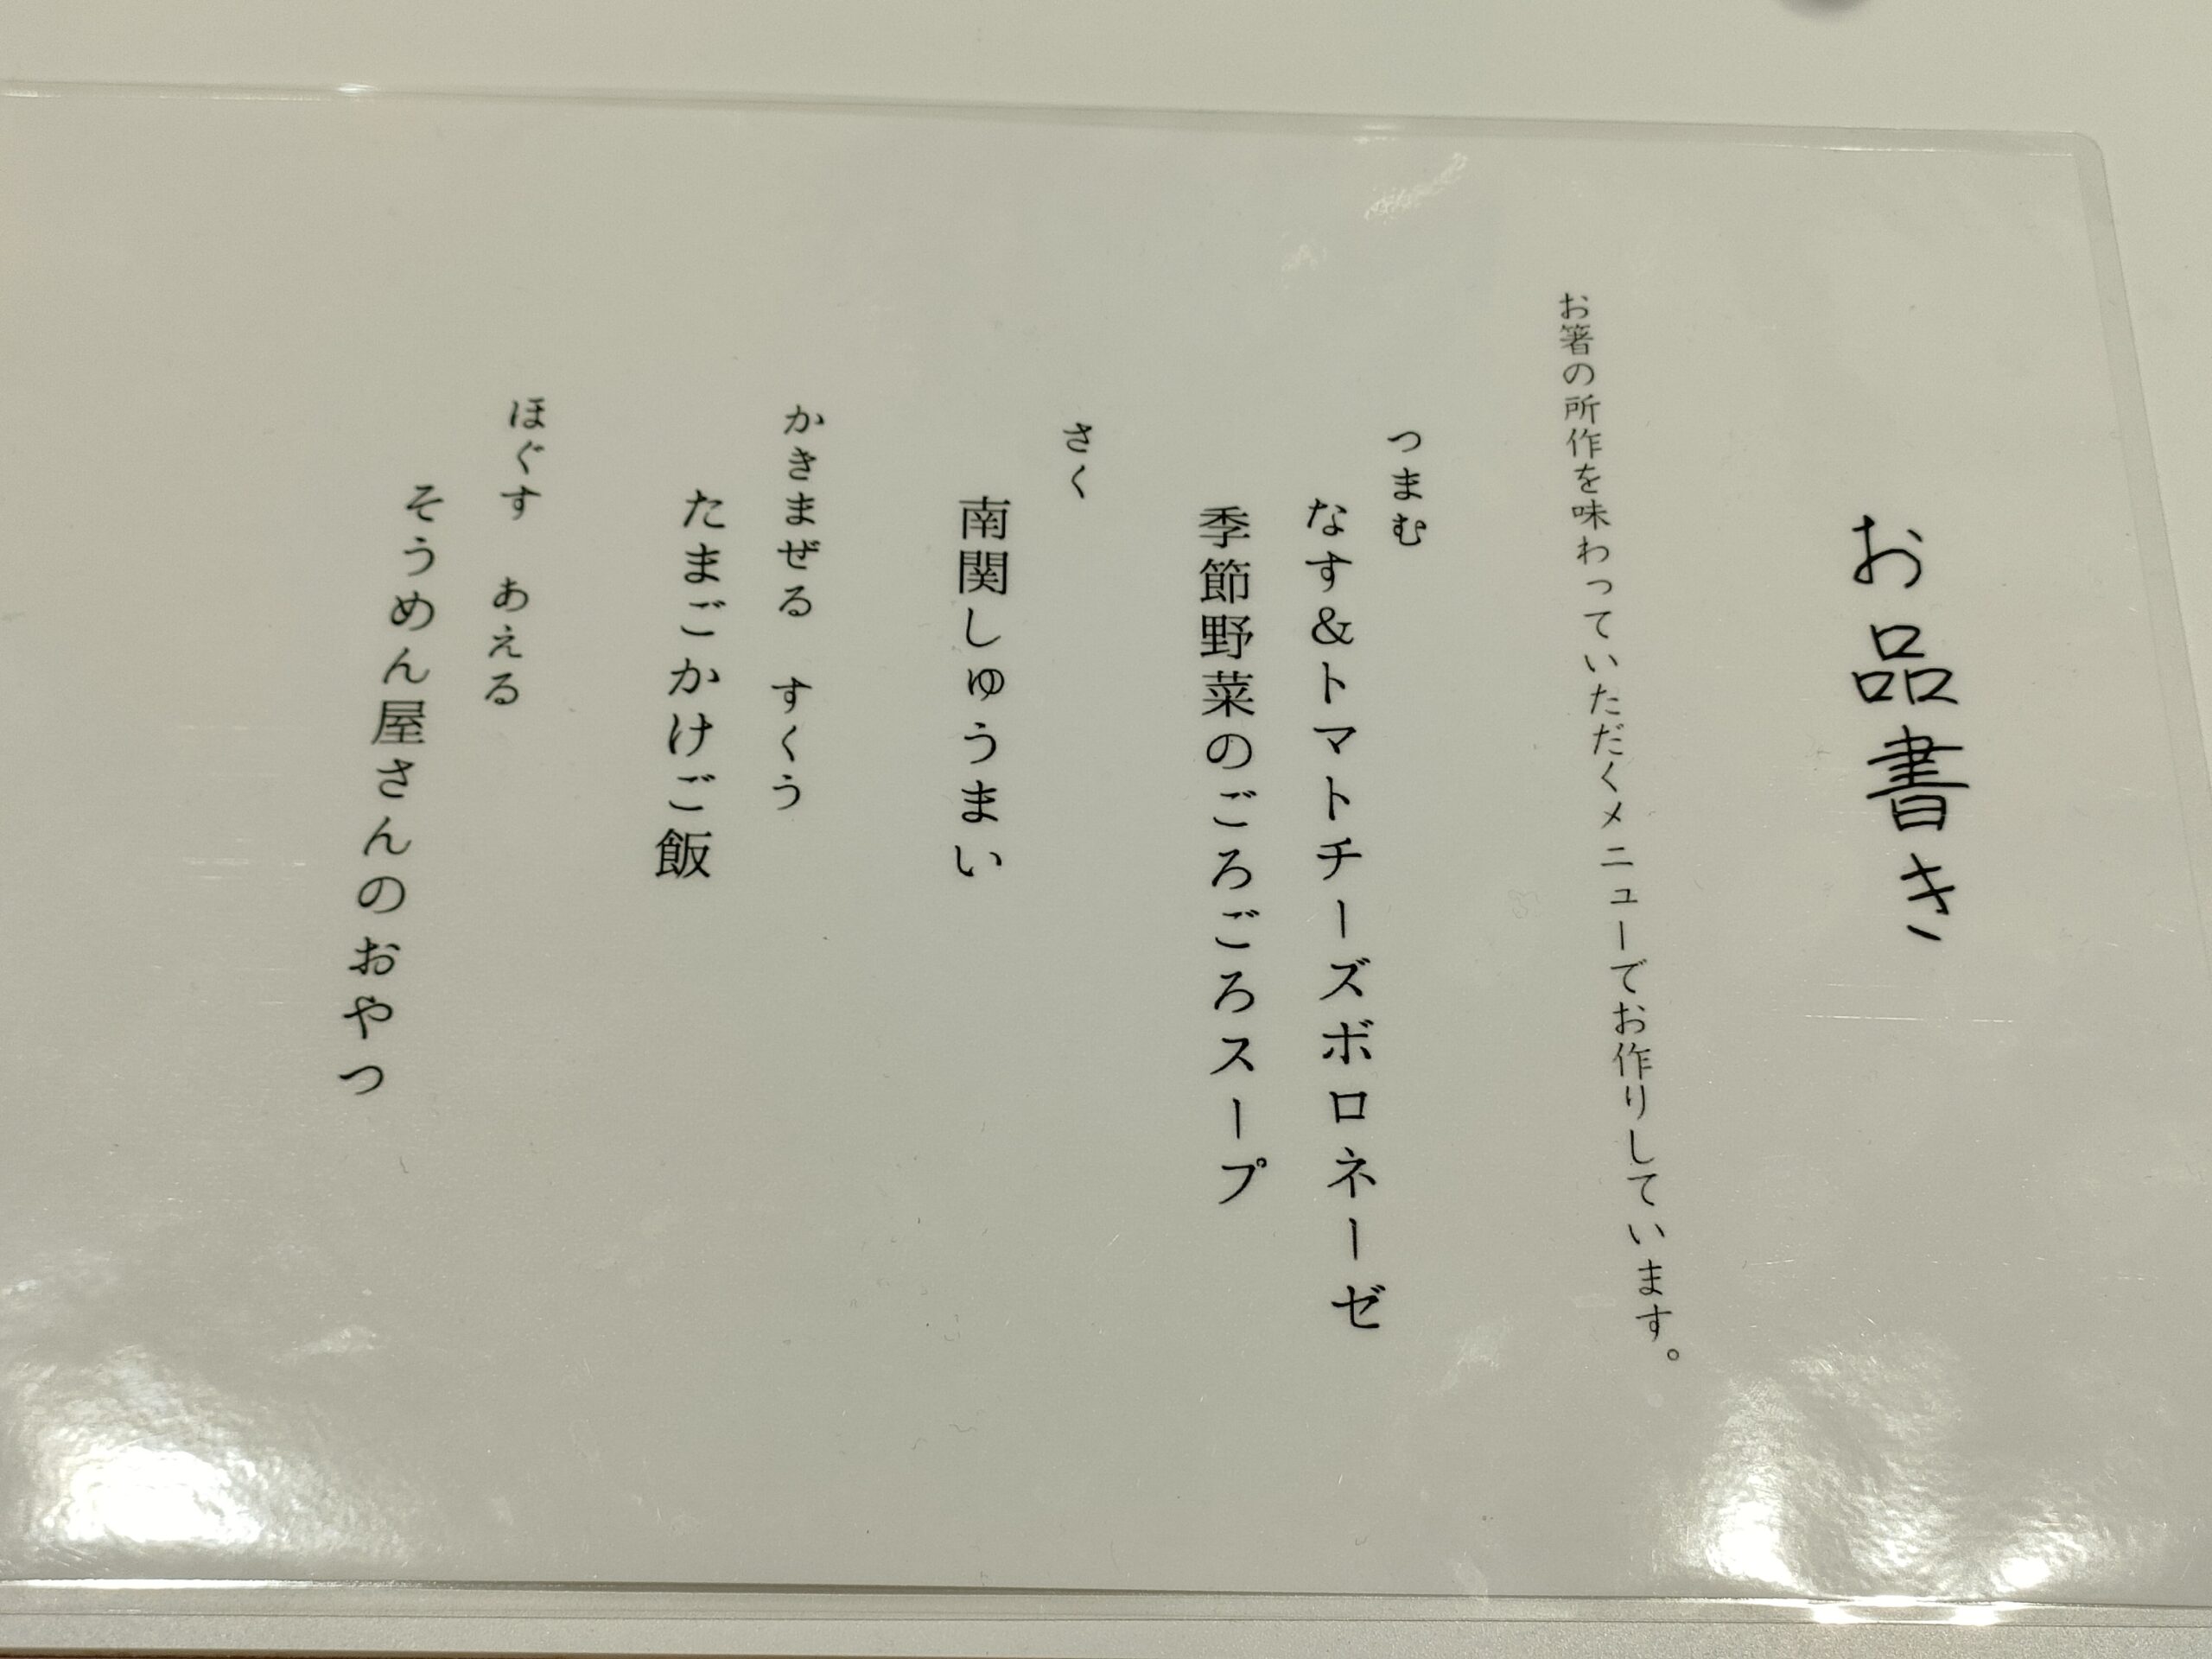 お品書き
お箸の所作を味わっていただくメニューでお作りしています。
つまむ
なす&トマトチーズボロネーゼ
季節野菜のごろごろスープ
さく
南関しゅうまい
かきまぜる　すくう
たまごかけご飯
ほぐす　あえる
そうめん屋さんのおやつ